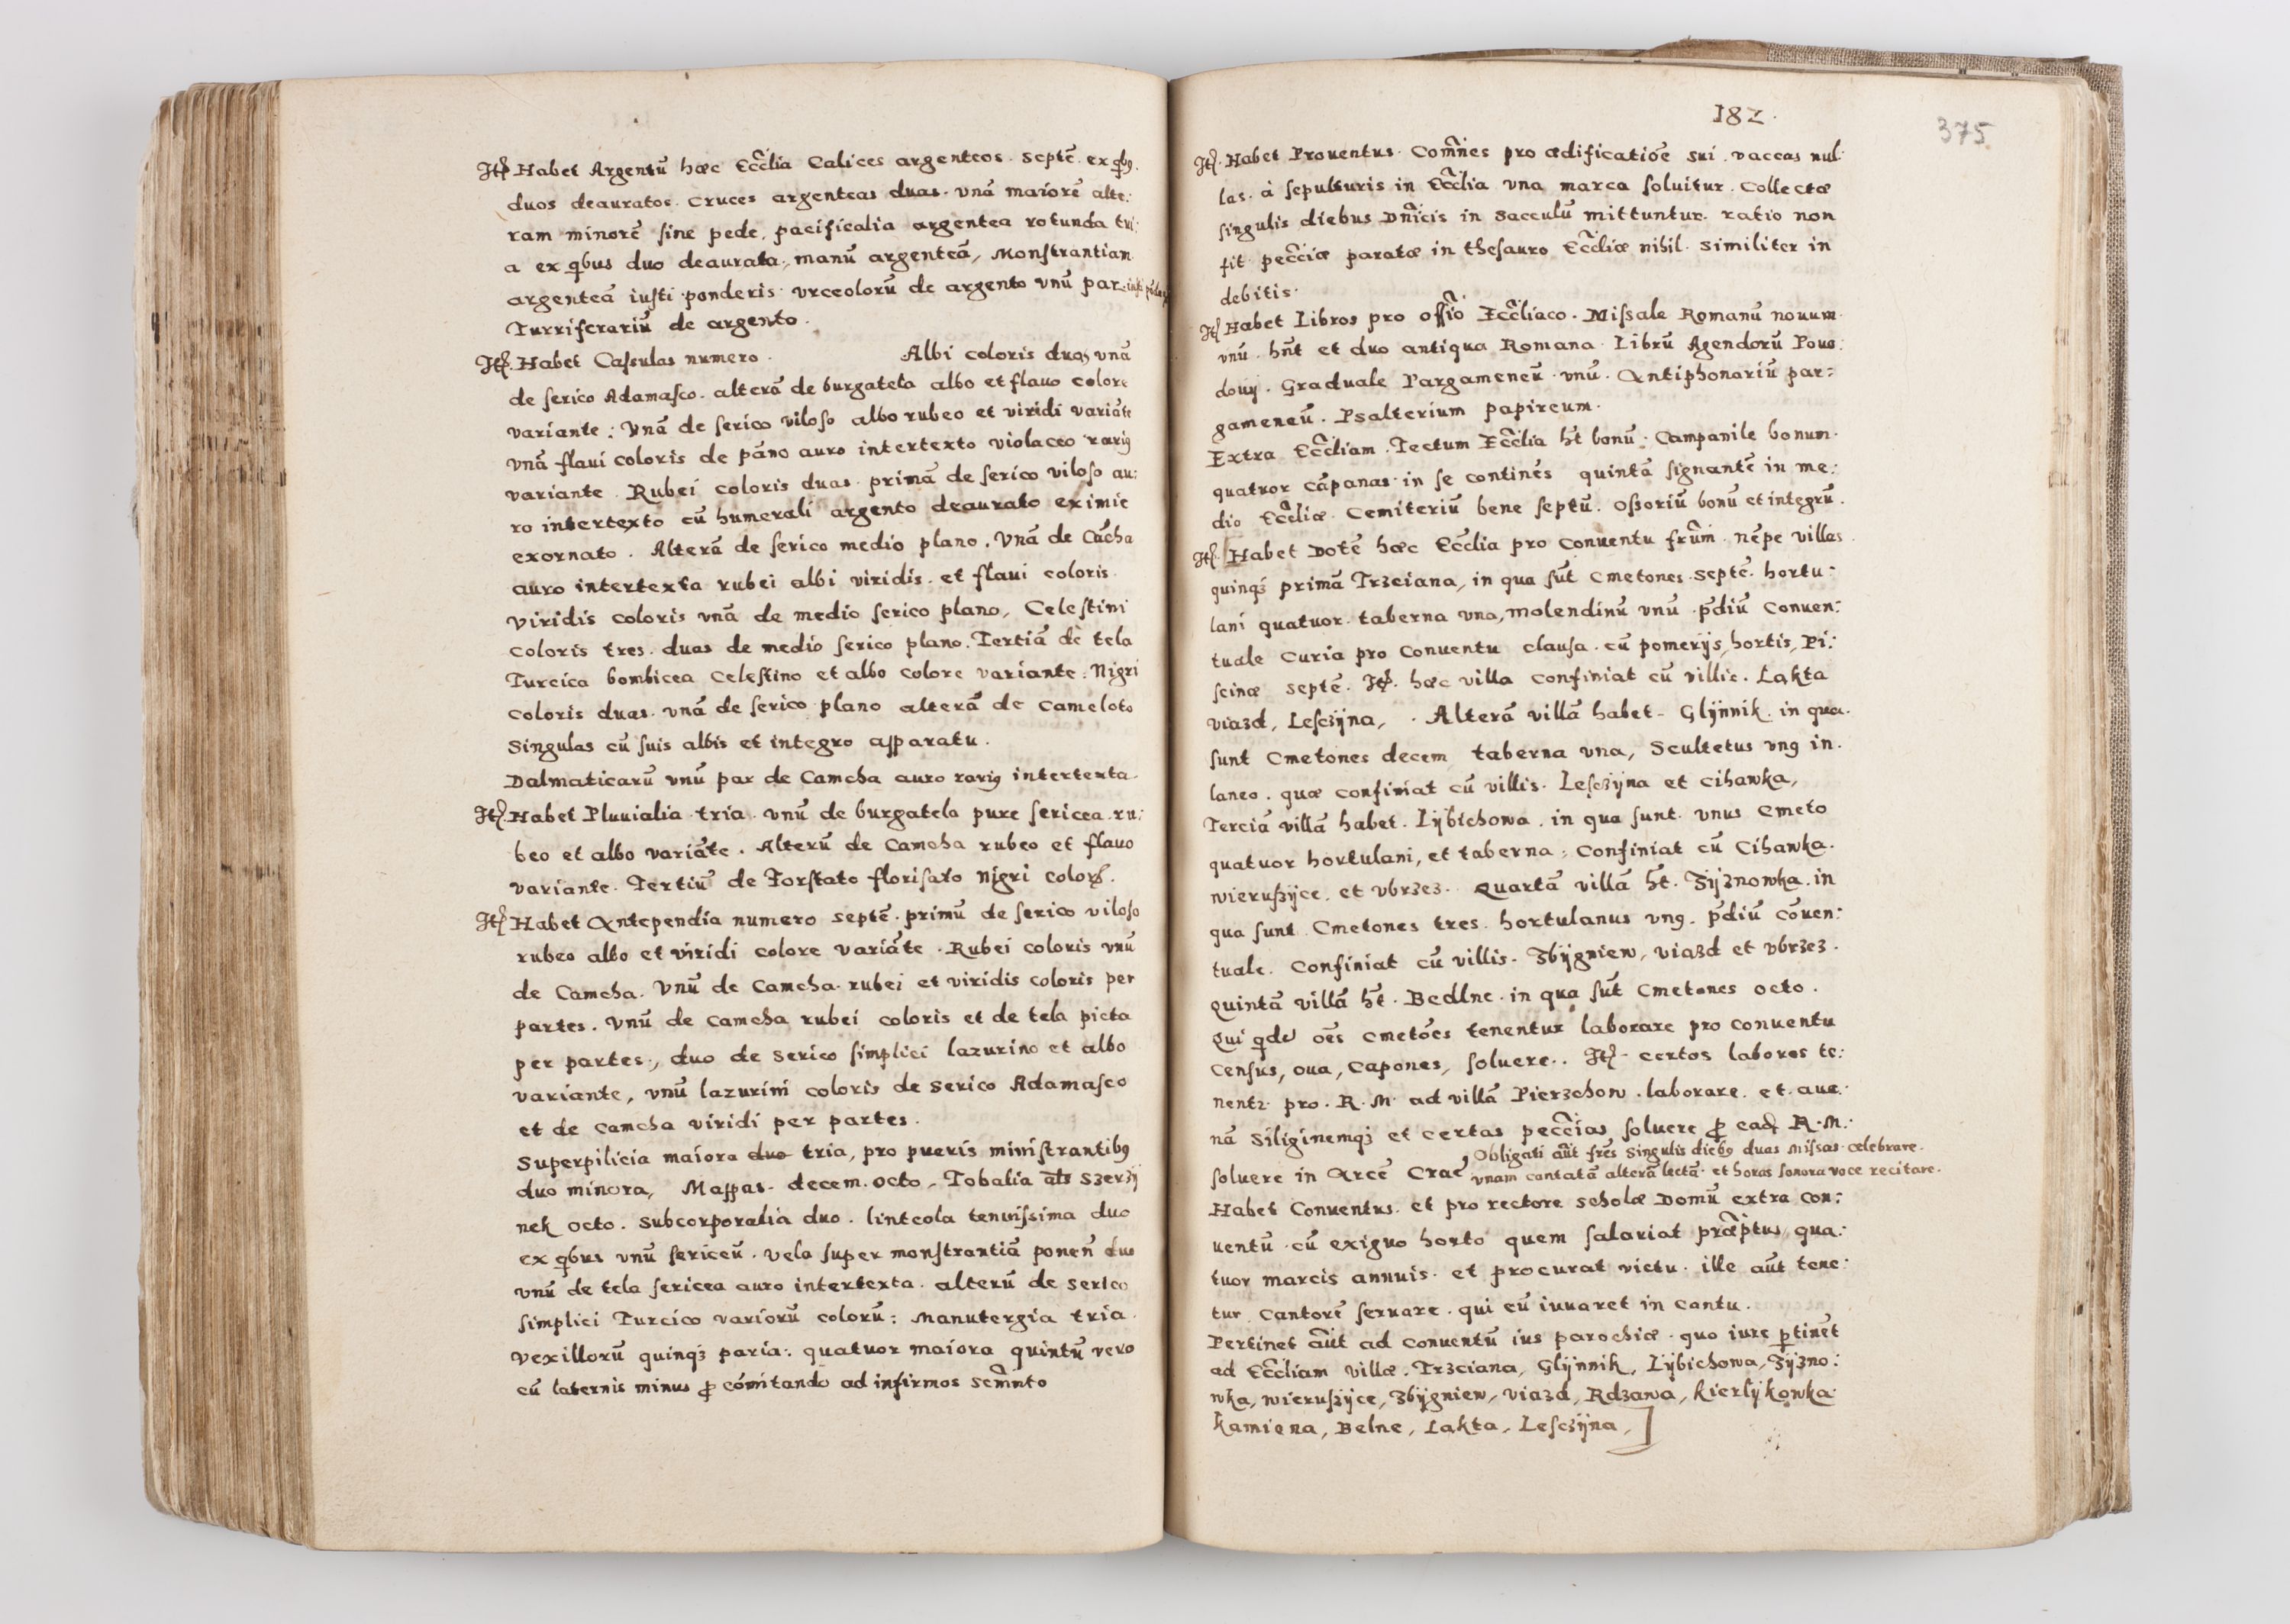 Itẽ Habet Argentũ hæc Ecc̃lia Calices argenteos. septẽ. ex q̃bꝰ.
duos deauratos. Cruces argenteas duas. vnã maiorẽ alte:
ram minorẽ sine pede. pacificalia argentea rotunda tri:
a ex q̃bus duo deaurata., manũ argenteã, Monstrantiam
argenteã iusti ponderis. vrceolorũ de argento vnũ par.
Turriferariũ de argento.
Itẽ. Habet Casulas numero. Albi coloris duas, vnã
de serico Adamasco. alterã de burgatela albo et flauo colore
variante: Vnã de serico viloso albo rubeo et viridi variãte
vnã flaui coloris de pãno auro intertexto violaceo rariꝰ
variante. Rubei coloris duas. primã de serico viloso au:
ro intertexto cũ humerali argento deaurato eximie
exornato. Alterã de serico medio plano. Vnã de Cãcha
auro intertexta rubei albi viridis. et flaui coloris.
Viridis coloris vnã de medio serico plano, Celestini
coloris tres. duas de medio serico plano. Tertiã de tela
Turcica bombicea Celestino et albo colore variante: Nigri
coloris duas. vnã de serico plano alterã de Cameloto
Singulas cũ suis albis et integro apparatu.
Dalmaticarũ vnũ par de Camcha auro rariꝰ intertexta.
Itẽ. Habet Pluuialia tria. vnũ de burgatela pure sericea. ru:
beo et albo variãte. Alterũ de Camcha rubeo et flauo
variante. Tertiũ de Forstato florisato nigri coloris.
Itẽ Habet Antependia numero septẽ. primũ de serico viloso
rubeo albo et viridi colore variãte. Rubei coloris vnũ
de Camcha. Vnũ de Camcha. rubei et viridis coloris per
partes. Vnũ de Camcha rubei coloris et de tela picta
per partes:, duo de serico simplici lazurino et albo
variante, vnũ lazurini coloris de serico Adamasco
et de Camcha viridi per partes.
Superpilicia maiora duo tria, pro pueris ministrantibꝰ
duo minora, Mappas. decem. octo, Tobalia als Szerzÿ
nek octo. Subcorporalia duo. linteola tenuissima duo
ex q̃bus vnũ sericeũ. Vela super monstrantiã ponen̄ duo
vnũ de tela sericea auro intertexta. alterũ de serico
simplici Turcico variorũ colorũ: Manutergia tria.
Vexillorũ quinqȝ paria: quatuor maiora quintũ vero
cũ laternis minus ꝓ comitando ad infirmos Scm̃nto
182.
375
Itẽ. Habet Prouentus. Com̃nes pro ædificatiõe sui. vaccas nul:
las. à sepulturis in Ecc̃lia vna marca soluitur. Collectæ
singulis diebus Dñicis in Sacculũ mittuntur. ratio non
fit pecc̃iæ paratæ in thesauro Ecc̃liæ nihil. Similiter in
debitis.
Itẽ Habet Libros pro offi͠o Ecc̃liaco. Missale Romanũ nouum.
vnũ. hñt et duo antiqua Romana. Librũ Agendorũ Pouo:
douÿ. Graduale Pargameneũ. vnũ. Antiphonariũ par:
gameneũ. Psalterium papireum.
Extra Ecc̃liam. Tectum Ecc̃lia ht̃ bonũ. Campanile bonum.
quatuor cãpanas in se continẽs quintã signantẽ in me:
dio Ecc̃liæ. Cemiteriũ bene septũ. Ossoriũ bonũ et integrũ.
Itẽ. Habet Dotẽ hæc Ecc̃lia pro Conuentu frũm. nẽpe villas.
quinqȝ primã Trzciana, in qua sũt Cmetones. septẽ. hortu:
lani quatuor. taberna vna, molendinũ vnũ p̃diũ Conuen:
tuale Curia pro Conuentu clausa. cũ pomerijs, hortis, Pi:
scinæ septẽ. Itẽ. hæc villa confiniat cũ villis. Lakta
viazd, Lesczÿna, . Alterã villã habet. Glÿnnik. in qua.
sunt Cmetones decem, taberna vna, Scultetus vnꝰ in.
laneo. quæ confiniat cũ villis. Lesczÿna et Cihawka,
Terciã villã habet. Lÿbichowa. in qua sunt. vnus Cmeto
quatuor hortulani, et taberna: Confiniat cũ Cihawka.
Wieruszÿce. et vbrzez. Quartã villã ht̃. Zÿznowka. in
qua sunt Cmetones tres. hortulanus vnꝰ. p̃diũ cõuen:
tuale. Confiniat cũ villis. Zbÿgniew, viazd et vbrzez.
Quintã villã ht̃. Bedlne. in qua sũt Cmetones octo.
Qui q̃dẽ oẽs cmetões tenentur laborare pro conuentu
Census, oua, Capones, soluere.. Itẽ. certos labores te:
nentꝛ pro. R. M. ad villã Pierzchow. laborare. et aue:
nã Siliginemqȝ et certas pecc̃ias soluere ꝓ eadẽ R. M.
Obligati aũt frẽs Singulis diebꝰ duas Missas. Celebrare.
soluere in Arce Crac̃ vnam cantatã alterã lectã. et horas sonora voce recitare.
Habet Conuentus. et pro rectore scholæ Domũ extra con:
uentũ. cũ exiguo horto quem salariat præp̃tus, qua:
tuor marcis annuis. et procurat victu. ille aũt tene:
tur Cantorẽ seruare. qui eũ iuuaret in cantu.
Pertinet aũt ad conuentũ ius parochiæ. quo iure ꝑtinẽt
ad Ecc̃liam villæ. Trzciana, Glÿnnik, Lÿbichowa, Zÿzno:
wka, Wieruszÿce, Zbÿgniew, viazd, Rdzawa, Kierlÿkowka
Kamiena, Belne, Lakta, Lesczÿna,